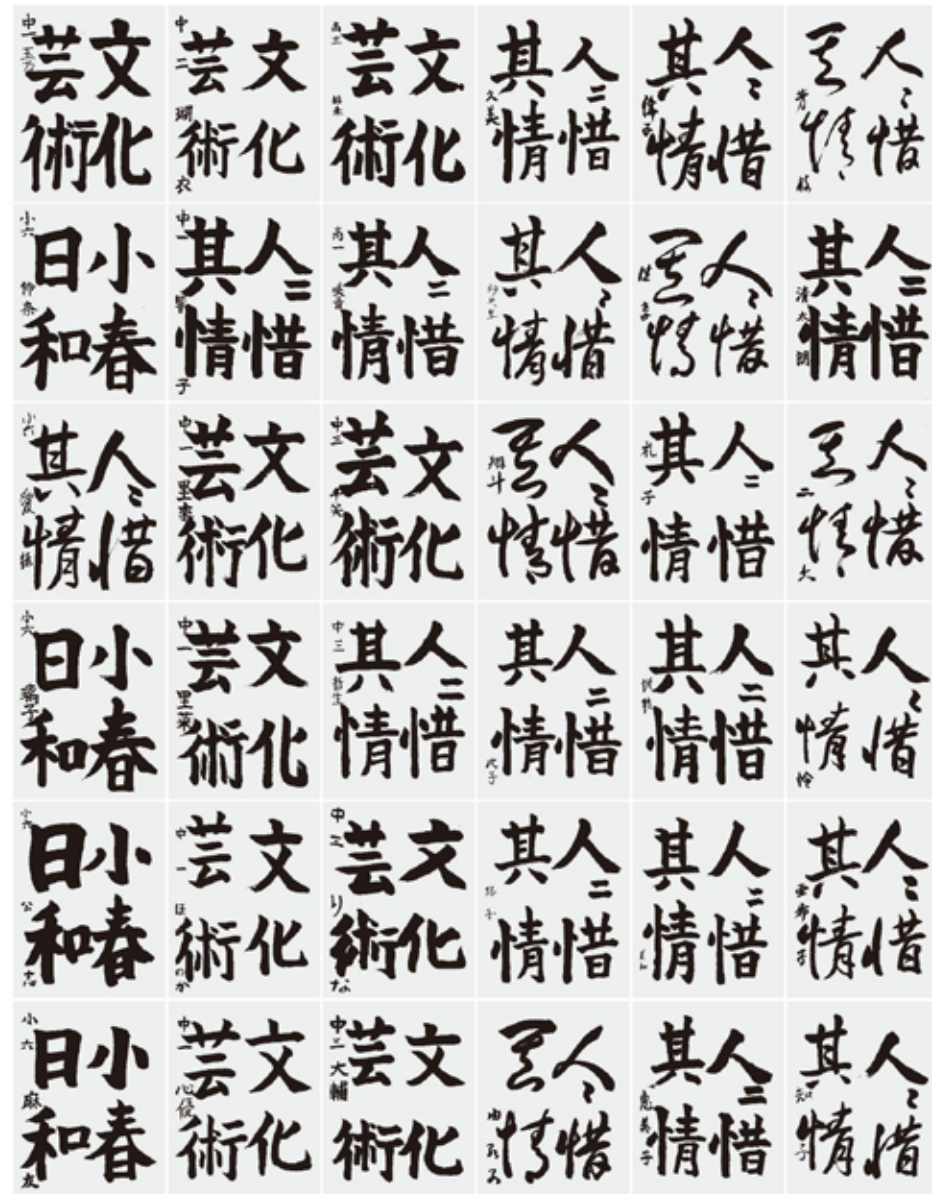 文化
芸術
中一
文化
芸術
中二
文化
芸術
高三
人二惜
其情
久美
人二惜
其情
人二惜
其情
小春
日和
小六
人二惜
其情
中一
人二惜
其情
高一
人二惜
其情
人二惜
其情
人二惜
其情
清太朗
人二惜
其情
小六
文化
芸術
中一
文化
芸術
中三
人二惜
其情
翔斗
人二惜
其情
礼子
人二惜
其情
小春
日和
小六
文化
芸術
中一 里菜
人二惜
其情
中三 哲生
人二惜
其情
人二惜
其情
人二惜
其情
怜
小春
日和
小六
文化
芸術
中一 ほのか
文化
芸術
中三 りな
人二惜
其情
人二惜
其情
人二惜
其情
亜希子
小春
日和
小六 麻友
文化
芸術
中一 心優
文化
芸術
中三 大輔
人二惜
其情
人二惜
其情
恵美子
人二惜
其情
知子